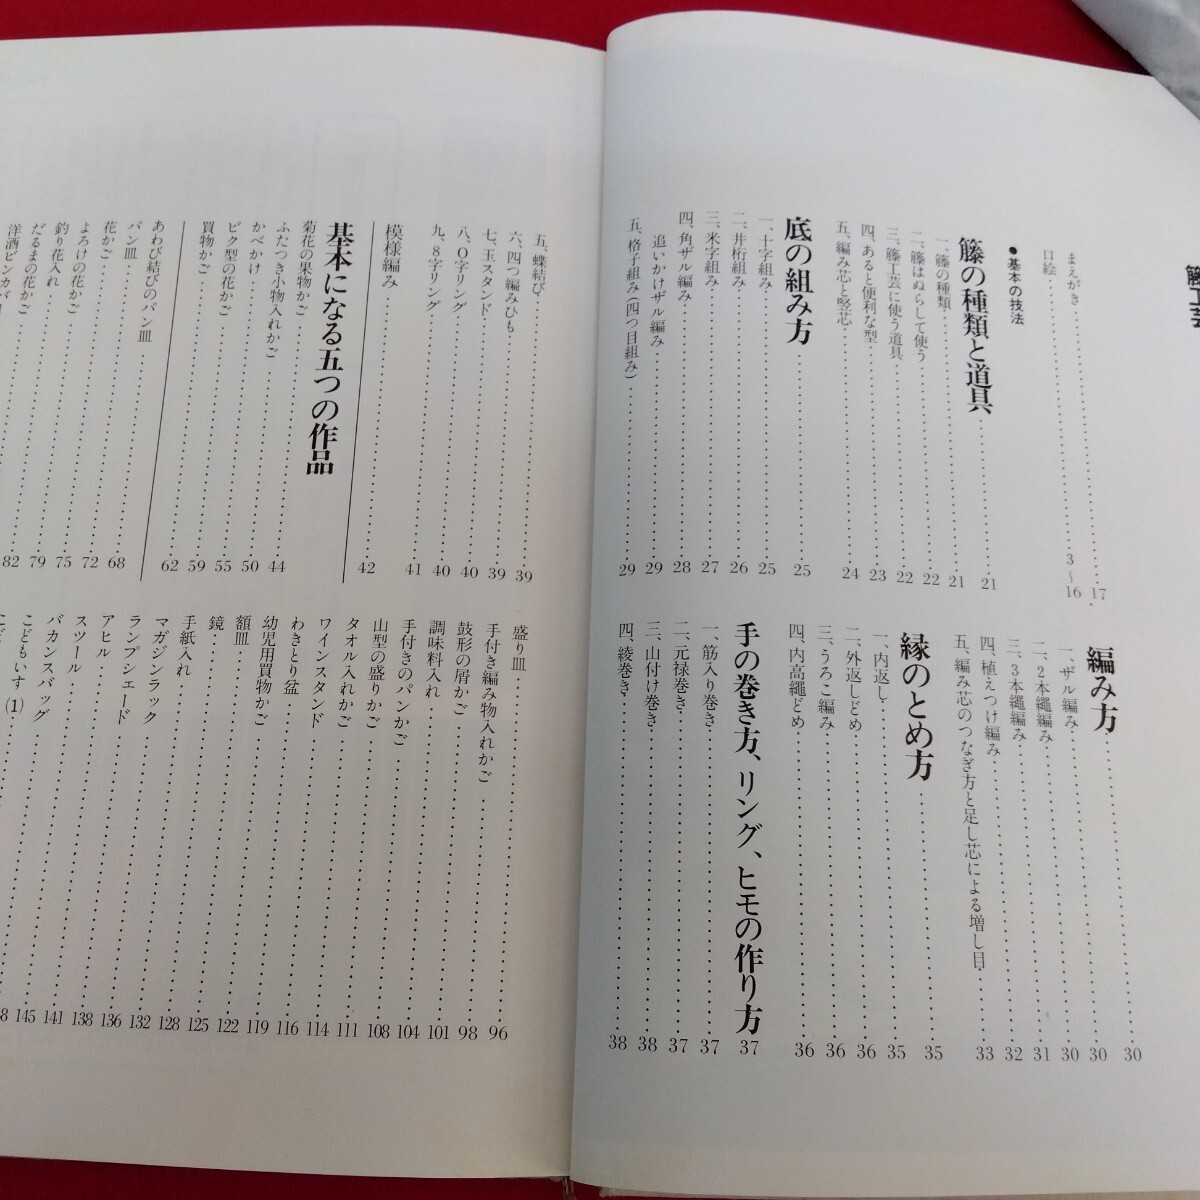 籐工芸
まえがき 17
口絵 3〜16
●基本の技法
籐の種類と道具 21
一、籐の種類 21
二、籐はぬらして使う 22
三、籐工芸に使う道具 22
四、あると便利な型 23
五、編み芯と竪芯 24
底の組み方 25
一、十字組み 25
二、井桁組み 26
三、米字組み 27
四、角ザル編み 28
追いかけザル編み 29
五、格子組み(四つ目組み) 29
編み方 30
一、ザル編み 30
二、2本縄編み 30
三、3本縄編み 31
四、植えつけ編み 32
五、編み芯のつなぎ方と足し芯による増し目 33
縁のとめ方 35
一、内返し 35
二、外返しどめ 36
三、うろこ編み 36
四、内高縄どめ 36
手の巻き方、リング、ヒモの作り方 37
一、筋入り巻き 37
二、元禄巻き 37
三、山付け巻き 38
四、綾巻き 38
五、蝶結び 39
六、四つ編みひも 39
七、玉スタンド 40
八、O字リング 40
九、8字リング 41
模様編み 42
基本になる五つの作品
菊花の果物かご 44
ふたつき小物入れかご 50
かべかけ 55
ビク型の花かご 59
買物かご 62
あわび結びのパン皿
パン皿 68
花かご 72
よろけの花かご 75
釣り花入れ 79
だるまの花かご 82
洋酒ビンカバー
盛り皿 96
手付き編み物入れかご 98
鼓形の屑かご 101
調味料入れ 104
手付きのパンかご 108
山型の盛りかご 111
タオル入れかご 114
ワインスタンド 116
わきとり盆 119
幼児用買物かご 122
額皿 125
鏡 128
手紙入れ 132
マガジンラック 136
ランプシェード 138
アヒル 141
スツール 145
バカンスバッグ
こどもいす(1)